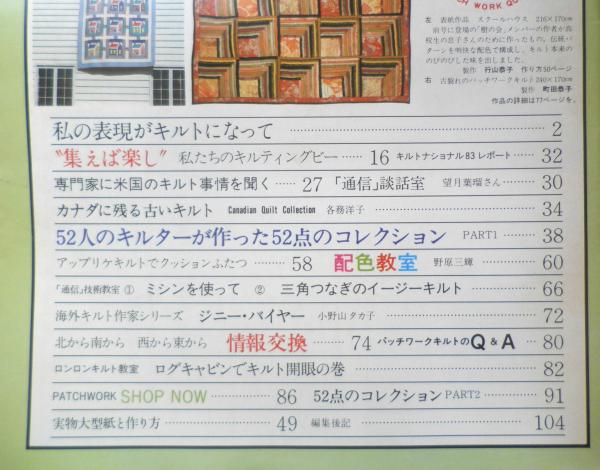 CH WORK QU
左　表紙作品　スクールハウス　216×170cm
前号に登場の「樹の会」メンバーの作者が高
校生の息子さんのために作ったもの。伝統パ
ターンを明快な配色で構成し、キルト本来の
のびのびした味を出しました。
製作　行山恭子　作り方50ページ
右　古裂れのパッチワークキルト240×170cm
製作　町田恭子
作品の詳細は77ページを。
私の表現がキルトになって ………… 2
"集えば楽し" 私たちのキルティングビー …… 16 キルトナショナル83レポート …… 32
専門家に米国のキルト事情を聞く …… 27 「通信」談話室 望月葉瑠さん …… 30
カナダに残る古いキルト Canadian Quilt Collection 各務洋子 ………… 34
52人のキルターが作った52点のコレクション PART1 …… 38
アップリケキルトでクッションふたつ ……… 58 配色教室 野原三輝 …… 60
「通信」技術教室 ① ミシンを使って ② 三角つなぎのイージーキルト ………… 66
海外キルト作家シリーズ ジニー・バイヤー 小野山タカ子 ………… 72
北から南から 西から東から 情報交換 ……… 74 パッチワークキルトのQ&A … 80
ロンロンキルト教室 ログキャビンでキルト開眼の巻 ………… 82
PATCHWORK SHOP NOW ………… 86 52点のコレクション PART2 …… 91
実物大型紙と作り方 ………… 49 編集後記 ………… 104